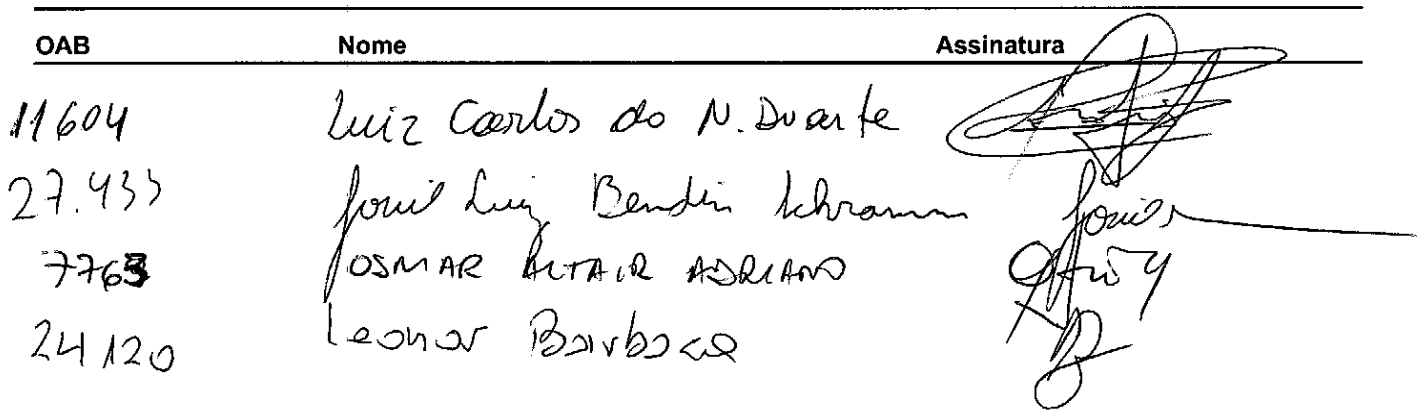 OAB Nome Assinatura
11604 Luiz Carlos do N. Duarte
27.433 Luiz Bendin Schramm
7763 OSMAR ALTAIR ADRIANO
24120 Leonor